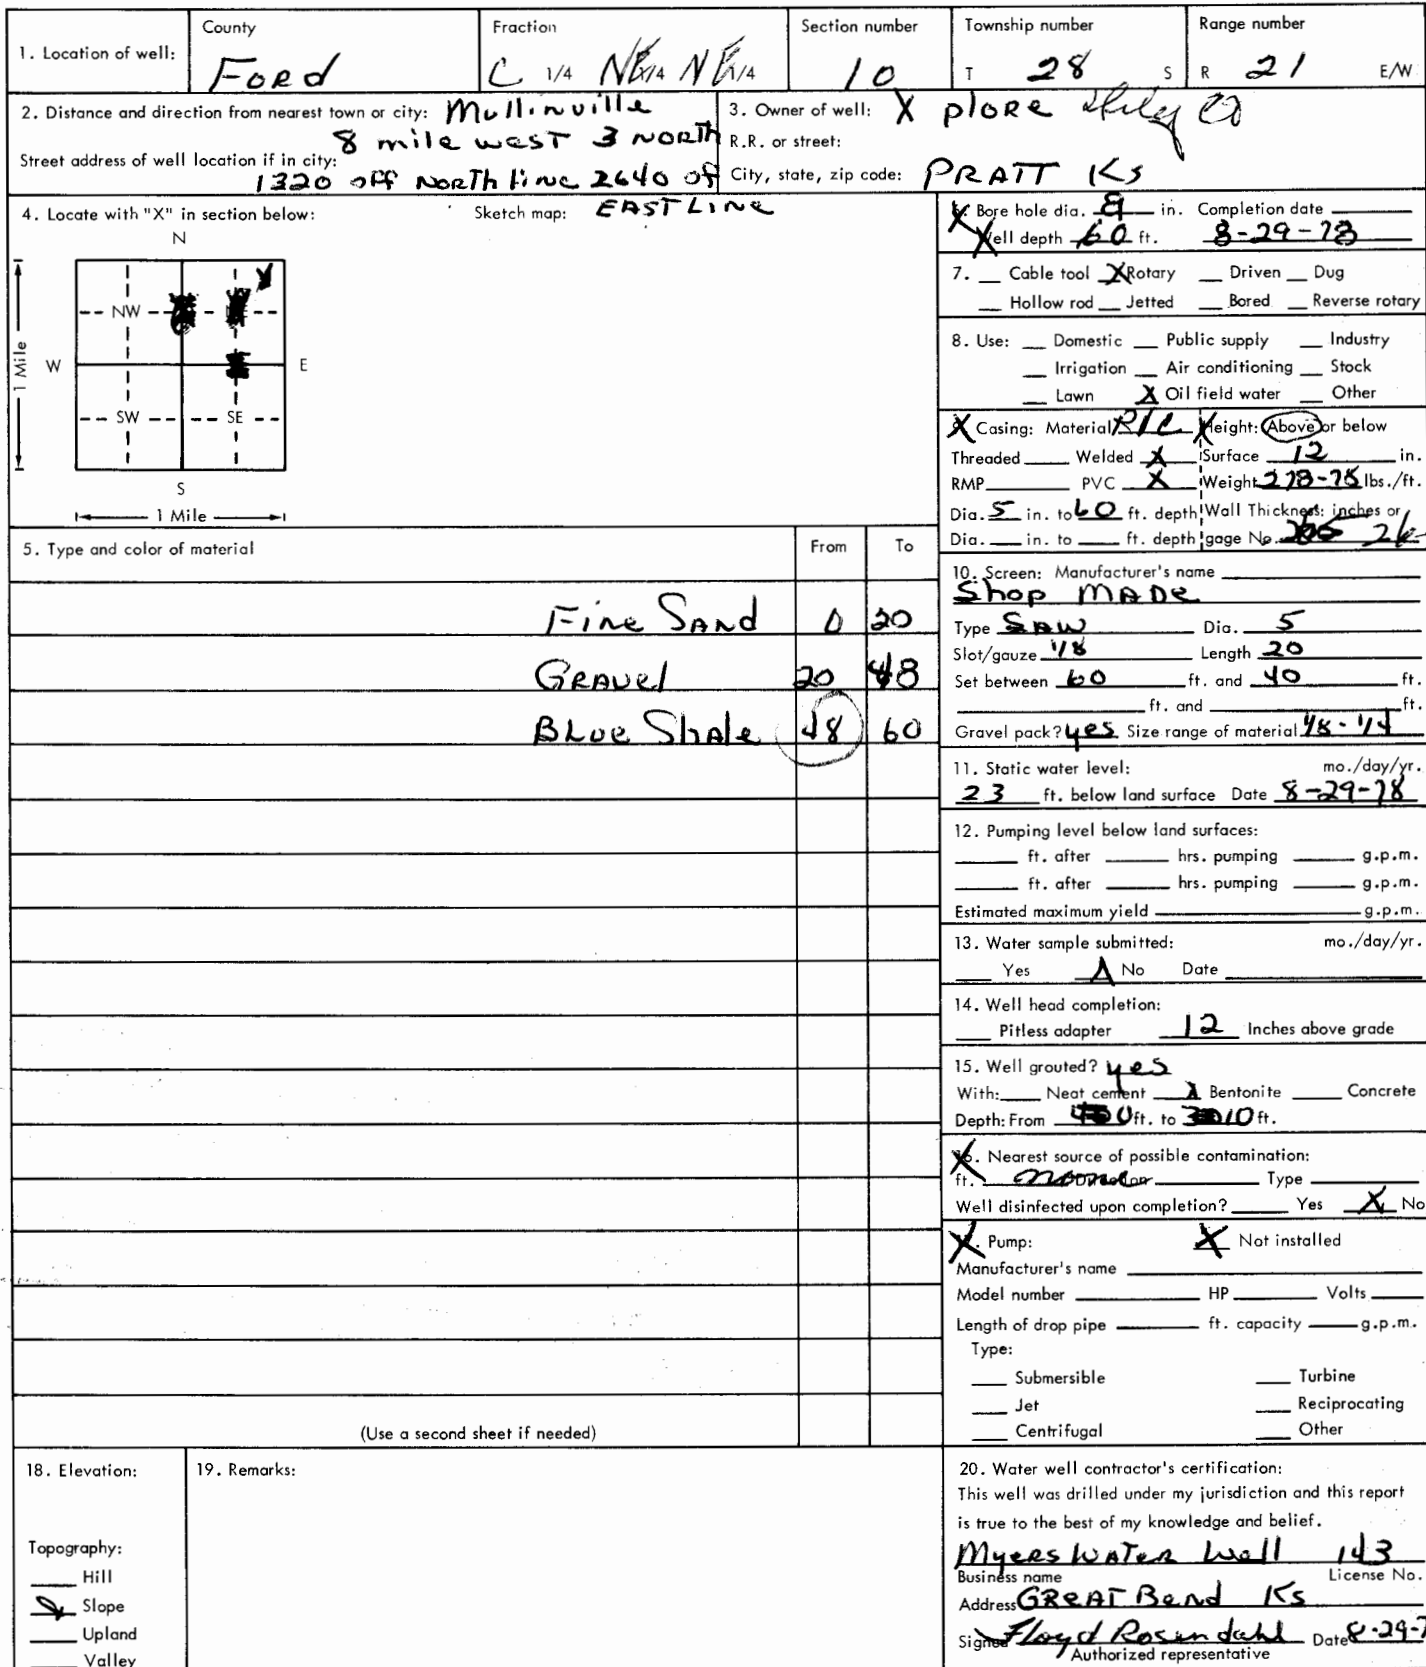 1. Location of well:
County
Ford
Fraction
C 1/4 NE 1/4 NE 1/4
Section number
10
Township number
T 28 S
Range number
R 21 E/W
2. Distance and direction from nearest town or city: Mullinville
8 mile west 3 NORTH
Street address of well location if in city:
1320 off North Line 2640 of
EAST LINE
3. Owner of well: X plore
R.R. or street:
City, state, zip code: PRATT Ks
4. Locate with "X" in section below:
Sketch map:
N
NW
W E
1 Mile
SW SE
S
1 Mile
5. Type and color of material From To
Fine SAND 0 20
GRAVel 20 48
BLue Shale 48 60
(Use a second sheet if needed)
Bore hole dia. in. Completion date
Well depth 60 ft. 8-29-78
7. Cable tool X Rotary Driven Dug
Hollow rod Jetted Bored Reverse rotary
8. Use: Domestic Public supply Industry
Irrigation Air conditioning Stock
Lawn X Oil field water Other
X Casing: Material Height: Above or below
Threaded Welded X Surface 12 in.
RMP PVC X Weight lbs./ft.
Dia. 5 in. to 60 ft. depth Wall Thickness: inches or
Dia. in. to ft. depth gage No.
10. Screen: Manufacturer's name
Shop MADe
Type SAW Dia. 5
Slot/gauze 1/8 Length 20
Set between 60 ft. and 40 ft.
ft. and ft.
Gravel pack? yes Size range of material 1/8 - 1/4
11. Static water level: mo./day/yr.
23 ft. below land surface Date 8-29-78
12. Pumping level below land surfaces:
ft. after hrs. pumping g.p.m.
ft. after hrs. pumping g.p.m.
Estimated maximum yield g.p.m.
13. Water sample submitted: mo./day/yr.
Yes X No Date
14. Well head completion:
Pitless adapter 12 Inches above grade
15. Well grouted? yes
With: Neat cement X Bentonite Concrete
Depth: From 0 ft. to 10 ft.
Nearest source of possible contamination:
ft. Type
Well disinfected upon completion? Yes X No
Pump: X Not installed
Manufacturer's name
Model number HP Volts
Length of drop pipe ft. capacity g.p.m.
Type:
Submersible Turbine
Jet Reciprocating
Centrifugal Other
18. Elevation:
Topography:
Hill
Slope
Upland
Valley
19. Remarks:
20. Water well contractor's certification:
This well was drilled under my jurisdiction and this report
is true to the best of my knowledge and belief.
Myers WATer Well 143
Business name License No.
Address GREAT Bend Ks
Signed Floyd Rosendahl Date 8-29-7
Authorized representative